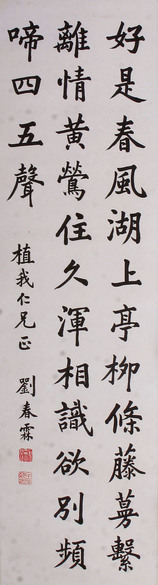 好是春風湖上亭柳條藤蔓繫
離情黃鶯住久渾相識欲別頻
啼四五聲
植我仁兄正
劉春霖